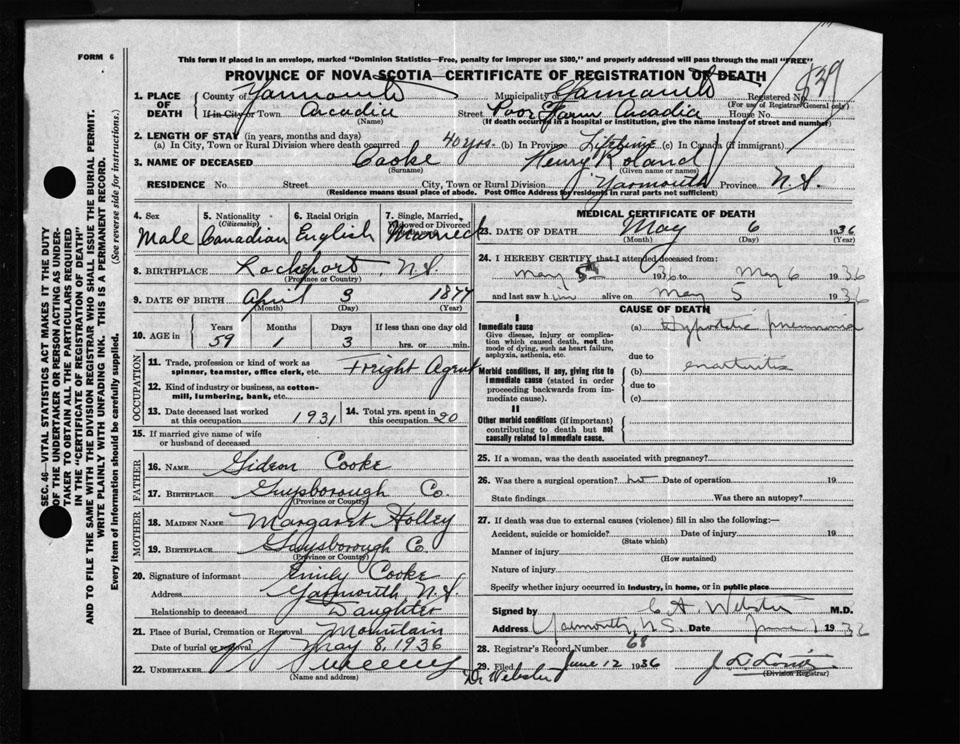 FORM 6
This form if placed in an envelope, marked "Dominion Statistics—Free, penalty for improper use $300," and properly addressed will pass through the mail "FREE"
PROVINCE OF NOVA SCOTIA—CERTIFICATE OF REGISTRATION OF DEATH
539
1. PLACE OF DEATH County of Yarmouth Municipality of Yarmouth Registered No.
(For use of Registrar General only)
If in City or Town Arcadia Street Poor Farm Arcadia House No.
(Name) (If death occurred in a hospital or institution, give the name instead of street and number)
2. LENGTH OF STAY (in years, months and days)
(a) In City, Town or Rural Division where death occurred 40 yrs. (b) In Province Lifetime (c) In Canada (if immigrant)
3. NAME OF DECEASED Cooke Henry Roland
(Surname) (Given name or names)
RESIDENCE No. Street City, Town or Rural Division Yarmouth Province N.S.
(Residence means usual place of abode. Post Office Address for residents in rural parts not sufficient)
4. Sex Male
5. Nationality (Citizenship) Canadian
6. Racial Origin English
7. Single, Married, Widowed or Divorced Married
8. BIRTHPLACE Lockeport, N.S.
(Province or Country)
9. DATE OF BIRTH April 3 1877
(Month) (Day) (Year)
10. AGE in Years Months Days If less than one day old
59 1 3 hrs. or min.
OCCUPATION
11. Trade, profession or kind of work as spinner, teamster, office clerk, etc. Frieght Agent
12. Kind of industry or business, as cotton-mill, lumbering, bank, etc.
13. Date deceased last worked at this occupation 1931
14. Total yrs. spent in this occupation 20
15. If married give name of wife or husband of deceased
FATHER
16. NAME Gideon Cooke
17. BIRTHPLACE Guysborough Co.
(Province or Country)
MOTHER
18. MAIDEN NAME Margaret Holley
19. BIRTHPLACE Guysborough Co.
(Province or Country)
20. Signature of informant Emily Cooke
Address Yarmouth, N.S.
Relationship to deceased Daughter
21. Place of Burial, Cremation or Removal Mountain
Date of burial or removal May 8, 1936
22. UNDERTAKER Sweeny
(Name and address)
MEDICAL CERTIFICATE OF DEATH
23. DATE OF DEATH May 6 1936
(Month) (Day) (Year)
24. I HEREBY CERTIFY that I attended deceased from:
May 5 1936 to May 6 1936
and last saw him alive on May 5 1936
CAUSE OF DEATH
I
Immediate cause
Give disease, injury or complication which caused death, not the mode of dying, such as heart failure, asphyxia, asthenia, etc.
(a) pneumonia
due to
Morbid conditions, if any, giving rise to immediate cause (stated in order proceeding backwards from immediate cause).
(b)
due to
(c)
II
Other morbid conditions (if important) contributing to death but not causally related to immediate cause.
25. If a woman, was the death associated with pregnancy?
26. Was there a surgical operation? no Date of operation 19
State findings Was there an autopsy?
27. If death was due to external causes (violence) fill in also the following:—
Accident, suicide or homicide? Date of injury 19
(State which)
Manner of injury
(How sustained)
Nature of injury
Specify whether injury occurred in industry, in home, or in public place
Signed by C A Webster M.D.
Address Yarmouth, N.S. Date June 1 1936
28. Registrar's Record Number 68
29. Filed June 12 1936
(Division Registrar)
Dr Webster
SEC. 46—VITAL STATISTICS ACT MAKES IT THE DUTY OF THE UNDERTAKER OR PERSON ACTING AS UNDERTAKER TO OBTAIN ALL THE PARTICULARS REQUIRED IN THE "CERTIFICATE OF REGISTRATION OF DEATH"
AND TO FILE THE SAME WITH THE DIVISION REGISTRAR WHO SHALL ISSUE THE BURIAL PERMIT.
WRITE PLAINLY WITH UNFADING INK. THIS IS A PERMANENT RECORD.
Every item of information should be carefully supplied. (See reverse side for instructions.)